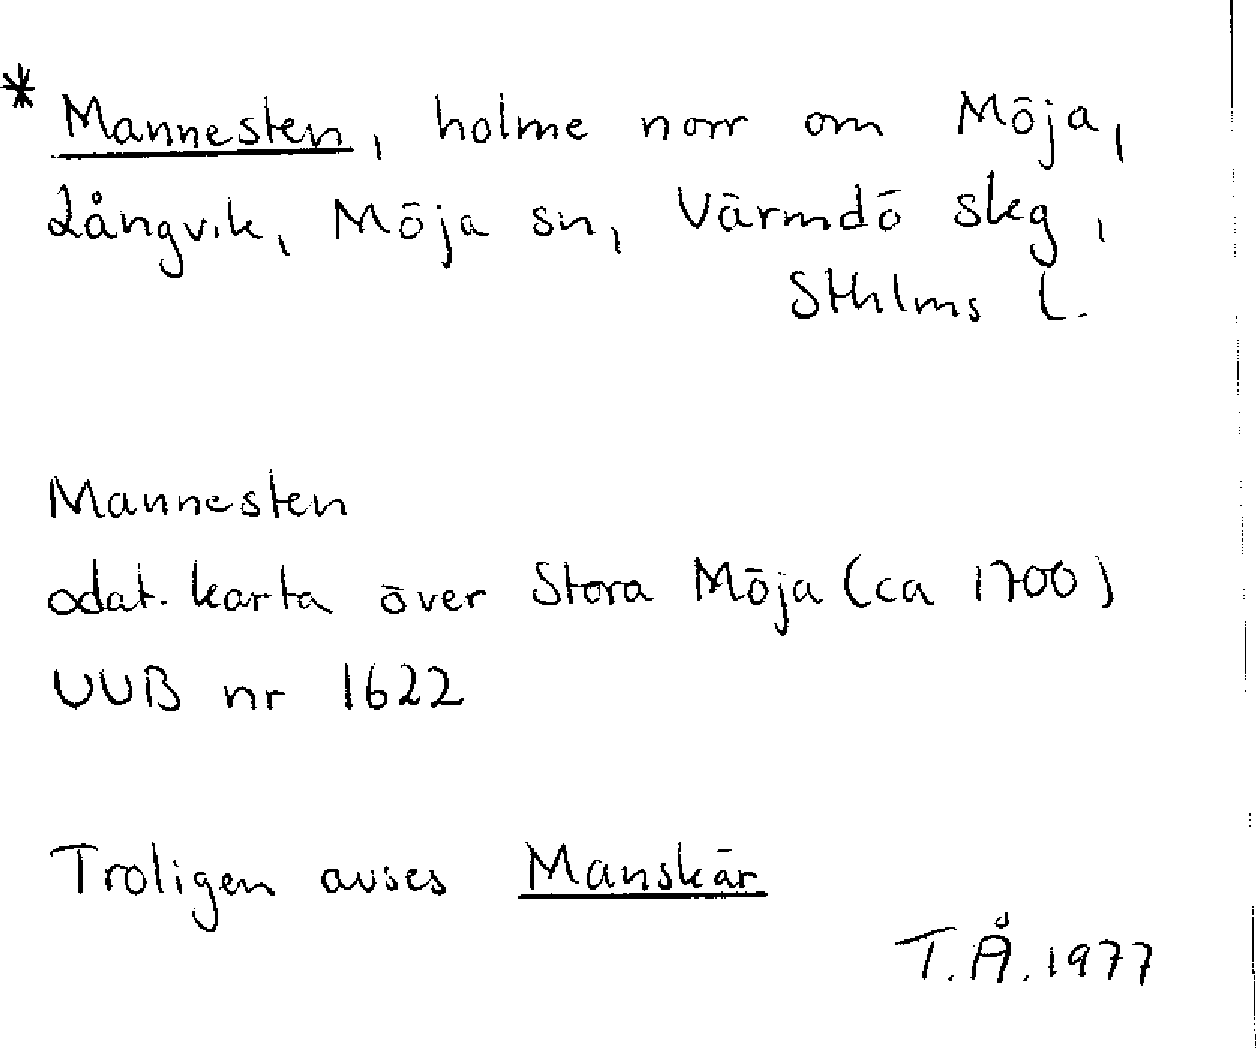 * Mannesten, holme norr om Möja,
Långvik, Möja sn, Värmdö skg,
Sthlms l.
Mannesten
odat. karta över Stora Möja (ca 1700)
UUB nr 1622
Troligen avses Manskär
T.Å. 1977